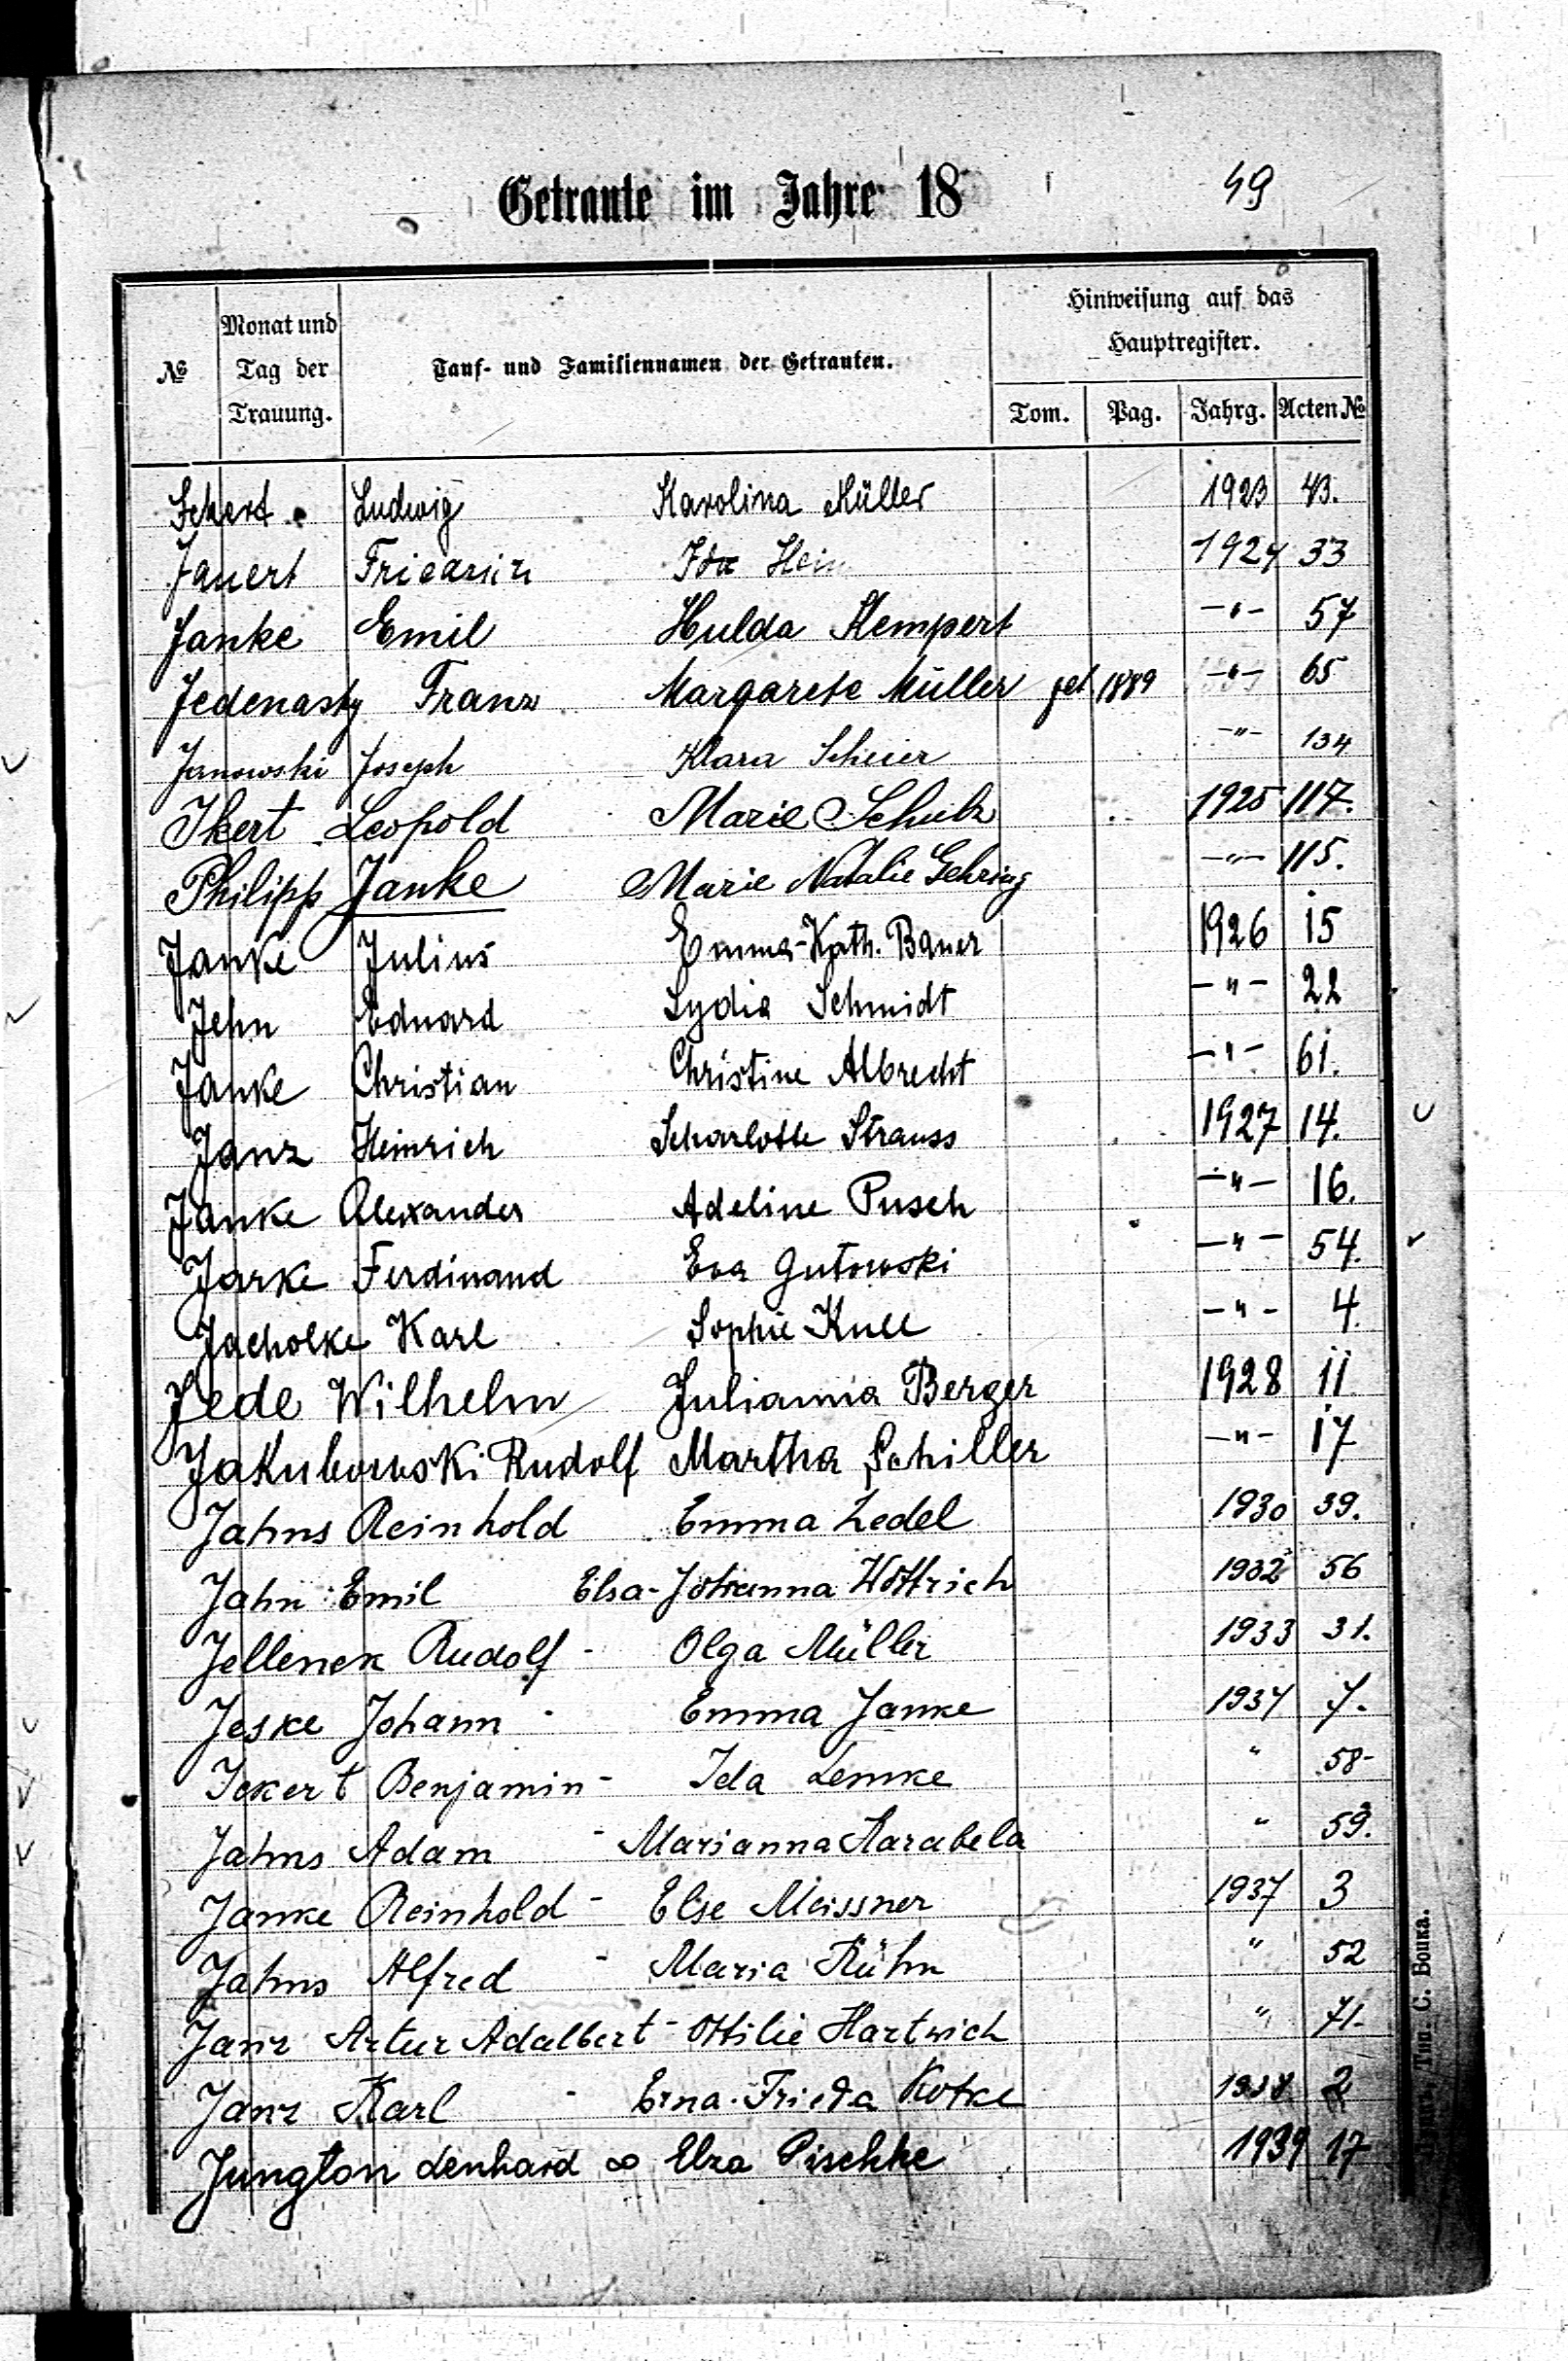 Getraute im Jahre 18 49
№ Monat und Tag der Trauung. Tauf- und Familiennamen der Getrauten. Hinweisung auf das Hauptregister.
Tom. Pag. Jahrg. Acten №
Ludwig Karolina Müller 1923 43.
Jauert Ida Hein 1924 33
Janke Emil Hulda Klempert -"- 57
Jedenasty Franz Margarete Müller 1889 -"- 65
Janowski Joseph Klara Scheier -"- 134
Ikert Leopold Marie Schulz 1925 117.
Philipp Janke Marie Natalie Gehring -"- 115.
Janke Julius Emma-Kath. Bauer 1926 15
Jehn Eduard Lydia Schmidt -"- 22
Janke Christian Christine Albrecht -"- 61.
Janz Heinrich Scharlotte Strauss 1927 14.
Janke Alexander Adeline Pusch -"- 16.
Jarke Ferdinand Eva Gutowski -"- 54.
Jacholke Karl Sophie -"- 4.
Jede Wilhelm Julianna Berger 1928 11
Jakubowski Rudolf Martha Schiller -"- 17
Jahns Reinhold Emma Zedel 1930 39.
Jahn Emil Elsa-Johanna Wottrich 1932 56
Jellenek Rudolf - Olga Müller 1933 31.
Jeske Johann - Emma Janke 7.
Ickert Benjamin - Ida Lemke " 58-
Jahns Adam - Marianna Karabela " 59.
Janke Reinhold - Else Meissner 1937 3
Jahns Alfred - Maria Kühn " 52
Janz Artur Adalbert - Ottilie Hartwich " 71.
Janz Karl - Erna-Frieda Kotke 1938 2
Jungton Lenhard ∞ Elza Pischke 1939 17
Тип. С. Вошка.